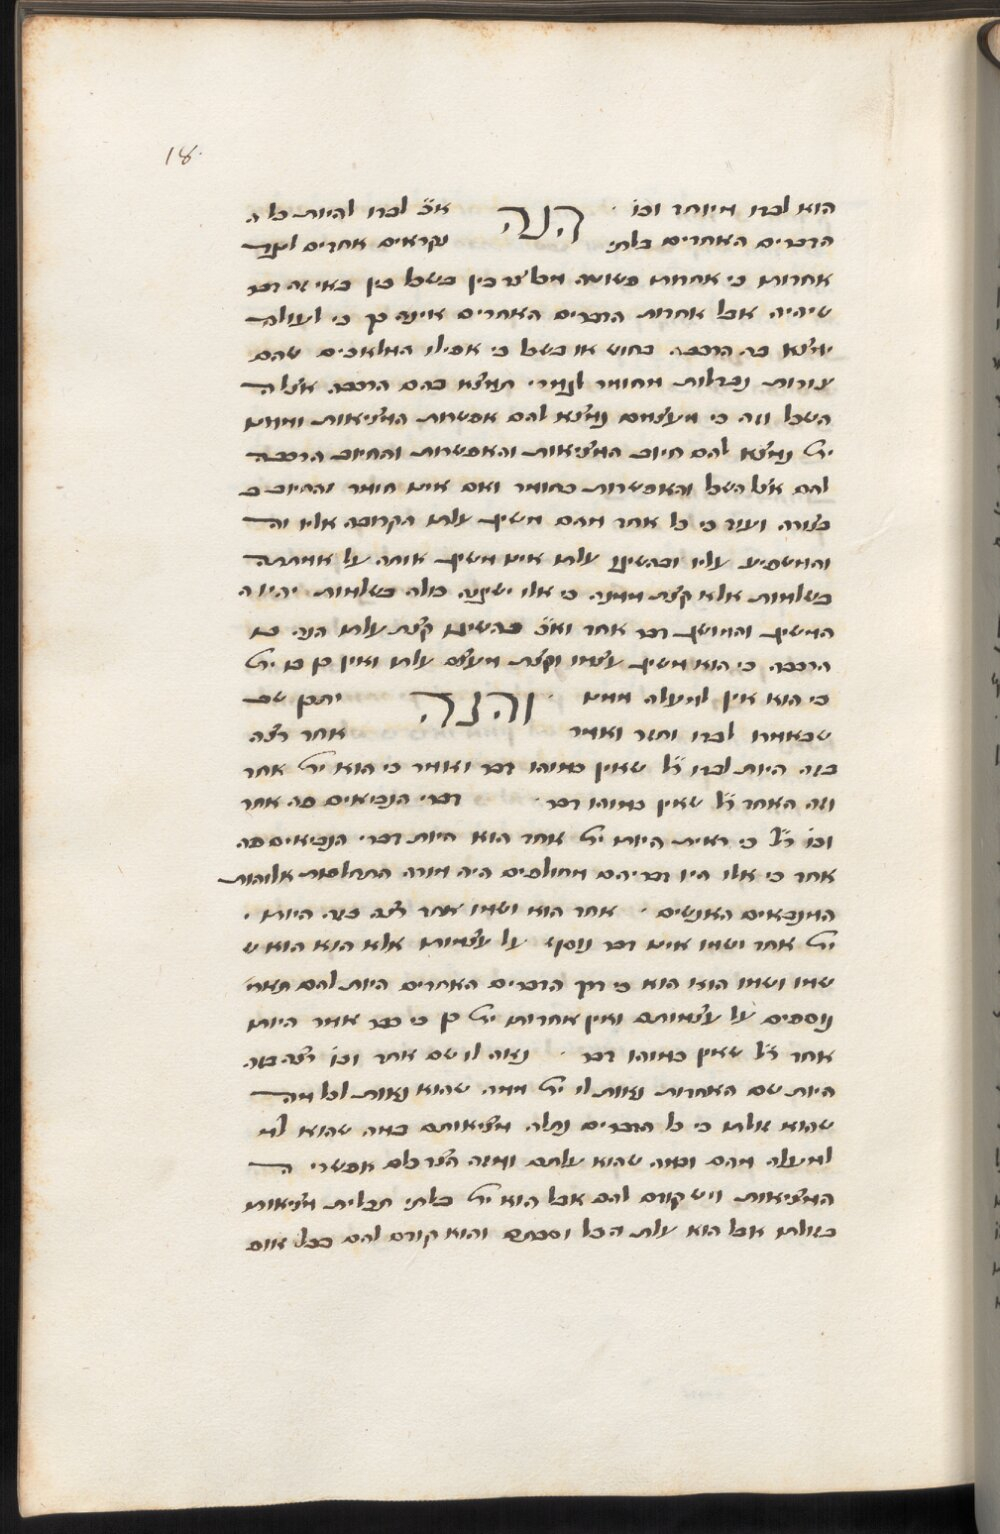 18.
הוא לבדו מיוחד וכו' הנה א"כ לבדו להיות כל ה
הדברים האחרים בלתי נקראים אחדים לפי
אחדות כי אחדות פשוטה מכל צד בין בשכל בין באי זה דבר
שיהיה אבל אחדות הדברים האחרים אינה כך כי לעולם
ימצא בה הרכבה בחוש או בשכל כי אפילו המלאכים שהם
צורות נבדלות מחומר לגמרי תמצא בהם הרכבה אצל ה
השכל וזה כי מעצמם נמצא להם אפשרות המציאות וממנו
ית' נמצא להם חיוב המציאות והאפשרות והחיוב הרכבה
להם אצל השכל והאפשרות כחומר ואם אינו חומר והחיוב כ
כצורה ועוד כי כל אחד מהם משיג עלתו הקרובה אליו וה
והמשפיע עליו ובהשיגו עלתו אינו משיג אותה על אמתתה
בשלמות אלא קצת ממנה כי אלו ישיגנה כולה בשלמות יהיו ה
המשיג והמושג דבר אחד וא"כ בהשיגו קצת עלתו הנה בו
הרכבה כי הוא משיג עצמו וקצת מעצם עלתו ואין כן בו ית'
כי הוא אין למעלה ממנו והנה יתכן שב
שבאמרו לבדו וחזר ואמר אחד רצה
בזה היות לבדו ר"ל שאין כמוהו דבר ואמר כי הוא ית' אחד
וזה האחד ר"ל שאין כמוהו דבר דברי הנביאים פה אחד
וכו' ר"ל כי ראית היותו ית' אחד הוא היות דברי הנביאים פה
אחד כי אלו היו דבריהם מחולפים היה מורה התחלפות אלוהות
המנבאים האנשים אחד הוא ושמו אחד רצה בזה היותו י
ית' אחד ושמו אינו דבר נוסף על עצמותו אלא הוא הוא ש
שמו ושמו הוא הוא כי דרך הדברים האחרים היות להם תארי
נוספים על עצמותם ואין אחדותו ית' כן כי כבר אמר היותו
אחד ר"ל שאין כמוהו דבר נאה לו שם אחד וכו' רצה בזה
היות שם האחדות נאות לו ית' ממה שהוא נאות לכל מה
שהוא זולתו כי כל הדברים נתלה מציאותם במה שהוא למ
למעלה מהם ובמה שהוא עלתם ומזה הצד כלם אפשרי ה
המציאות ויש קודם להם אבל הוא ית' בלתי תכלית מציאותו
בזולתו אבל הוא עלת הכל וסבתם והוא קודם להם בכל אופ